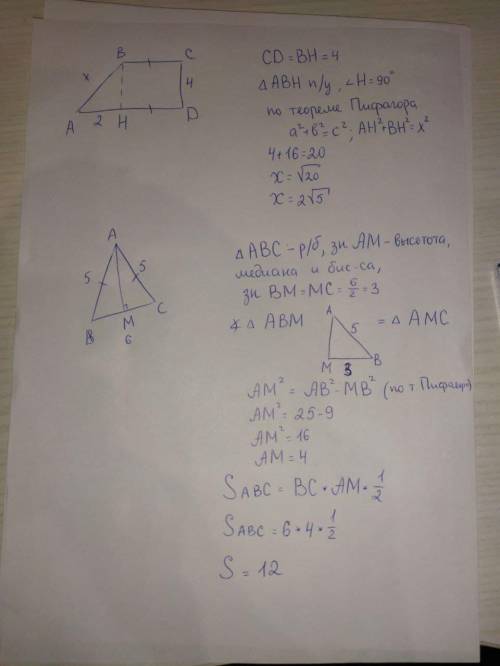 B
C
x
4
A
2
H
D
CD = BH = 4
△ABH п/у, ∠H = 90°
по теореме Пифагора
a²+b²=c²; AH²+BH²=x²
4+16=20
x=√20
x=2√5
A
5
5
B
M
C
6
△ABC – р/б, зн AM – высотота,
медиана и бис-са,
зн BM = MC = 6/2 = 3
∢ △ ABM
A
5
M
3
B
= △ AMC
AM² = AB² - MB² (по т Пифагор)
AM² = 25-9
AM² = 16
AM = 4
S ABC = BC * AM * 1/2
S ABC = 6 * 4 * 1/2
S = 12